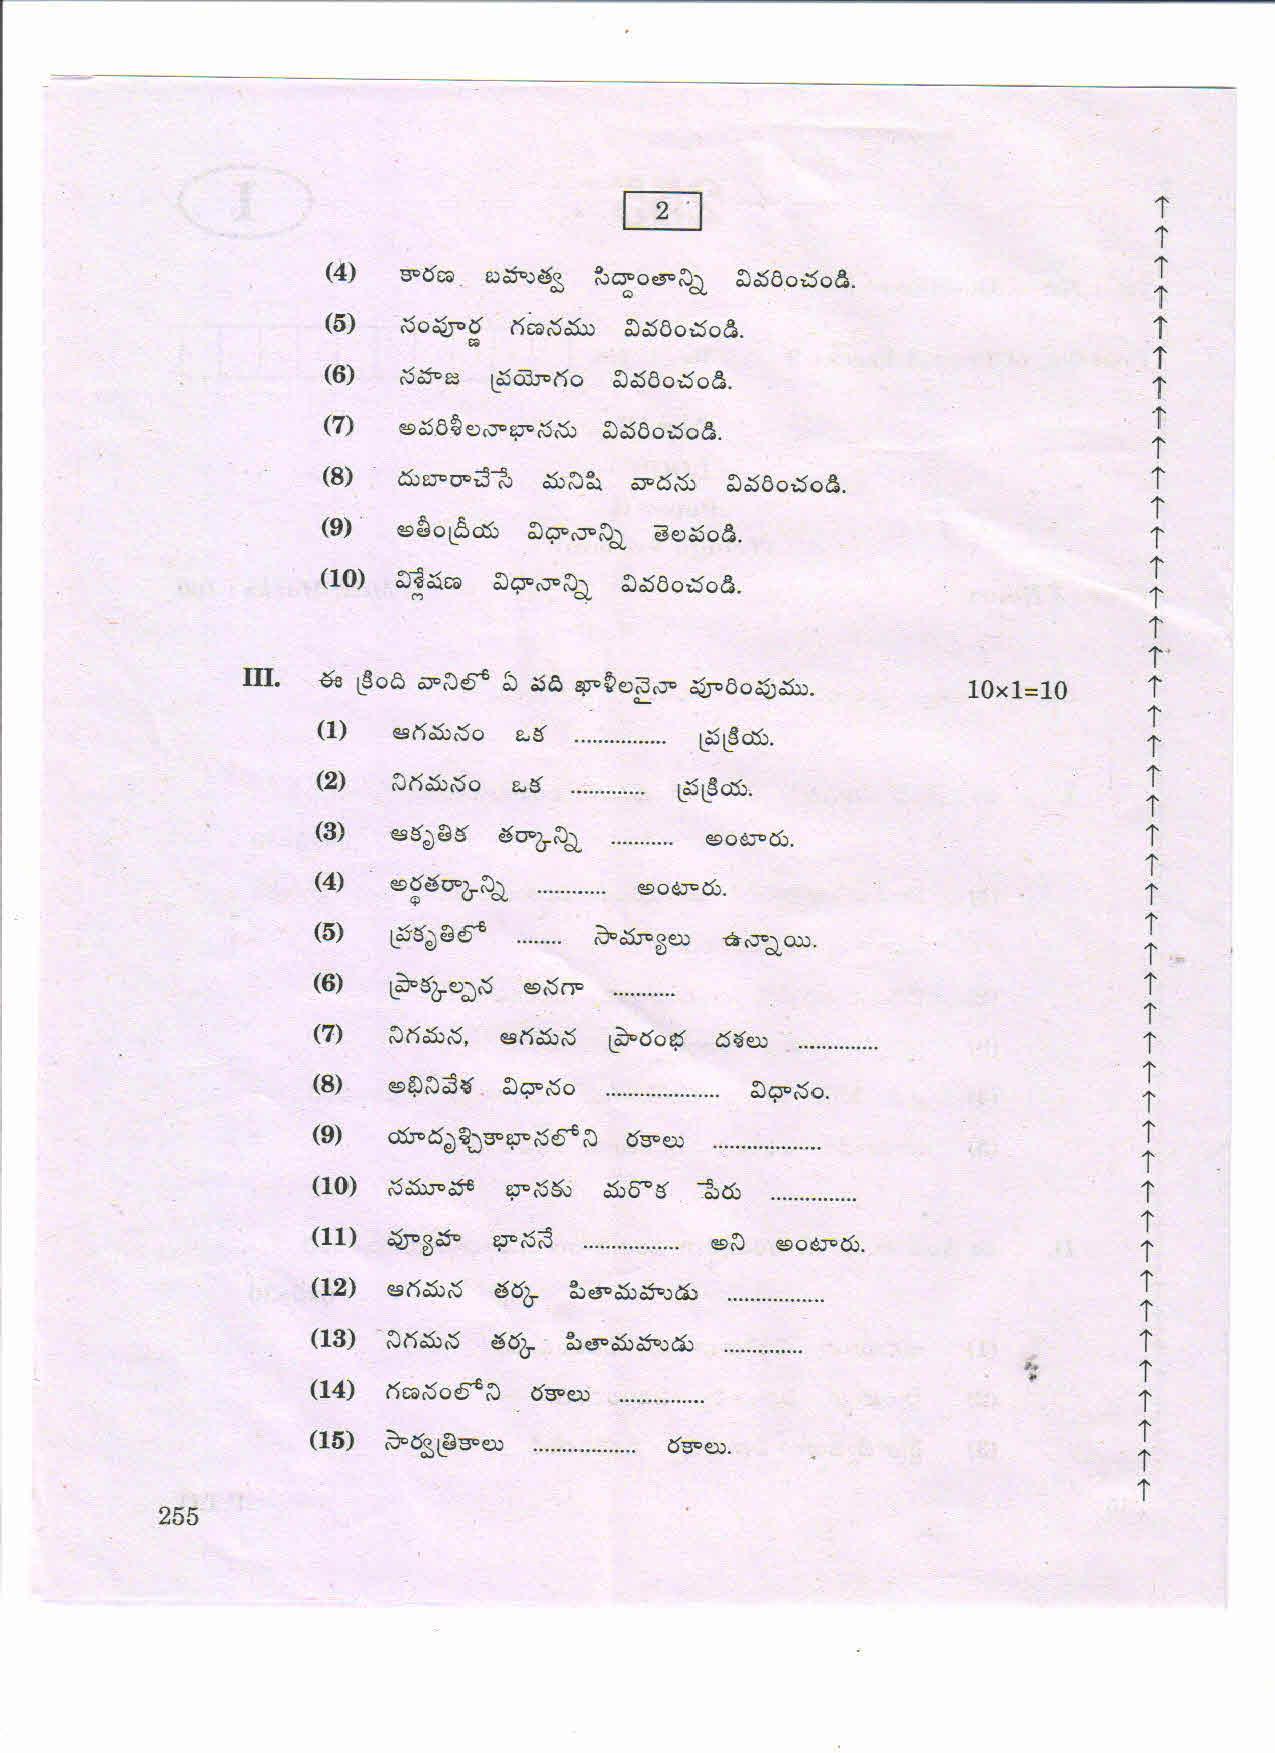 2
(4) కారణ బహుత్వ సిద్ధాంతాన్ని వివరించండి.
(5) సంపూర్ణ గణనము వివరించండి.
(6) సహజ ప్రయోగం వివరించండి.
(7) అపరిశీలనాభాసను వివరించండి.
(8) దుబారాచేసే మనిషి వాదను వివరించండి.
(9) అతీంద్రీయ విధానాన్ని తెలపండి.
(10) విశ్లేషణ విధానాన్ని వివరించండి.
III. ఈ క్రింది వానిలో ఏ పది ఖాళీలనైనా పూరింపుము. 10×1=10
(1) ఆగమనం ఒక ................ ప్రక్రియ.
(2) నిగమనం ఒక ............. ప్రక్రియ.
(3) ఆకృతిక తర్కాన్ని ........... అంటారు.
(4) అర్థతర్కాన్ని ............ అంటారు.
(5) ప్రకృతిలో ........ సామ్యాలు ఉన్నాయి.
(6) ప్రాక్కల్పన అనగా ...........
(7) నిగమన, ఆగమన ప్రారంభ దశలు ..............
(8) అభినివేశ విధానం .................... విధానం.
(9) యాదృశ్చికాభాసలోని రకాలు ...................
(10) సమూహా భాసకు మరొక పేరు ...............
(11) వ్యూహ భాసనే ................. అని అంటారు.
(12) ఆగమన తర్క పితామహుడు .................
(13) నిగమన తర్క పితామహుడు ..............
(14) గణనంలోని రకాలు ...............
(15) సార్వత్రికాలు .................. రకాలు.
255